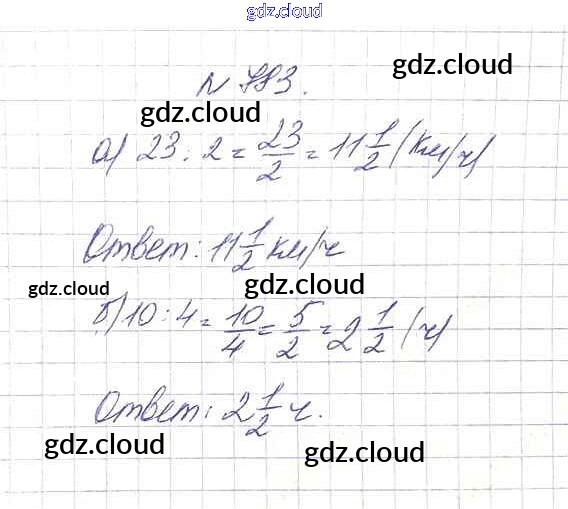 gdz.cloud
gdz.cloud
gdz.cloud
N 883.
gdz.cloud
а) 23 : 2 = 23/2 = 11 1/2 (км/ч)
gdz.cloud
Ответ: 11 1/2 км/ч
gdz.cloud gdz.cloud
б) 10 : 4 = 10/4 = 5/2 = 2 1/2 (ч)
Ответ: 2 1/2 ч.
gdz.cloud gdz.cloud